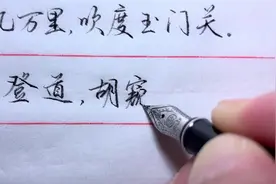 几万里，吹度玉门关。
登道，胡窥